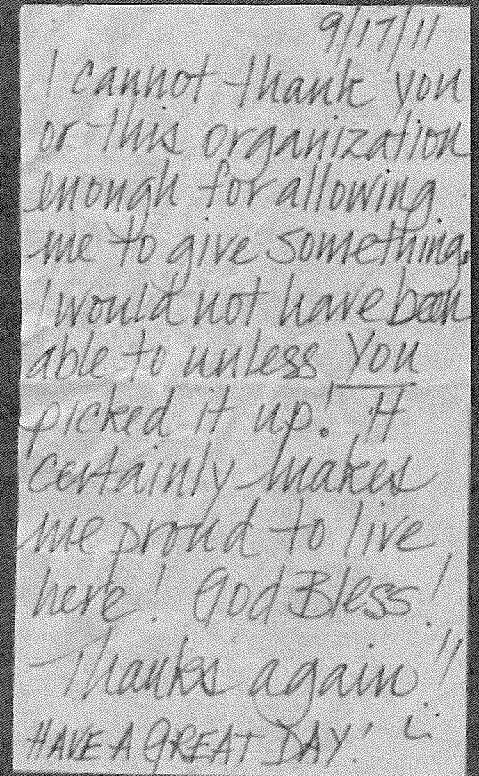 9/17/11
I cannot thank you
or this organization
enough for allowing
me to give something.
I would not have been
able to unless You
picked it up! It
certainly makes
me proud to live
here! God Bless!
Thanks again!!
HAVE A GREAT DAY!